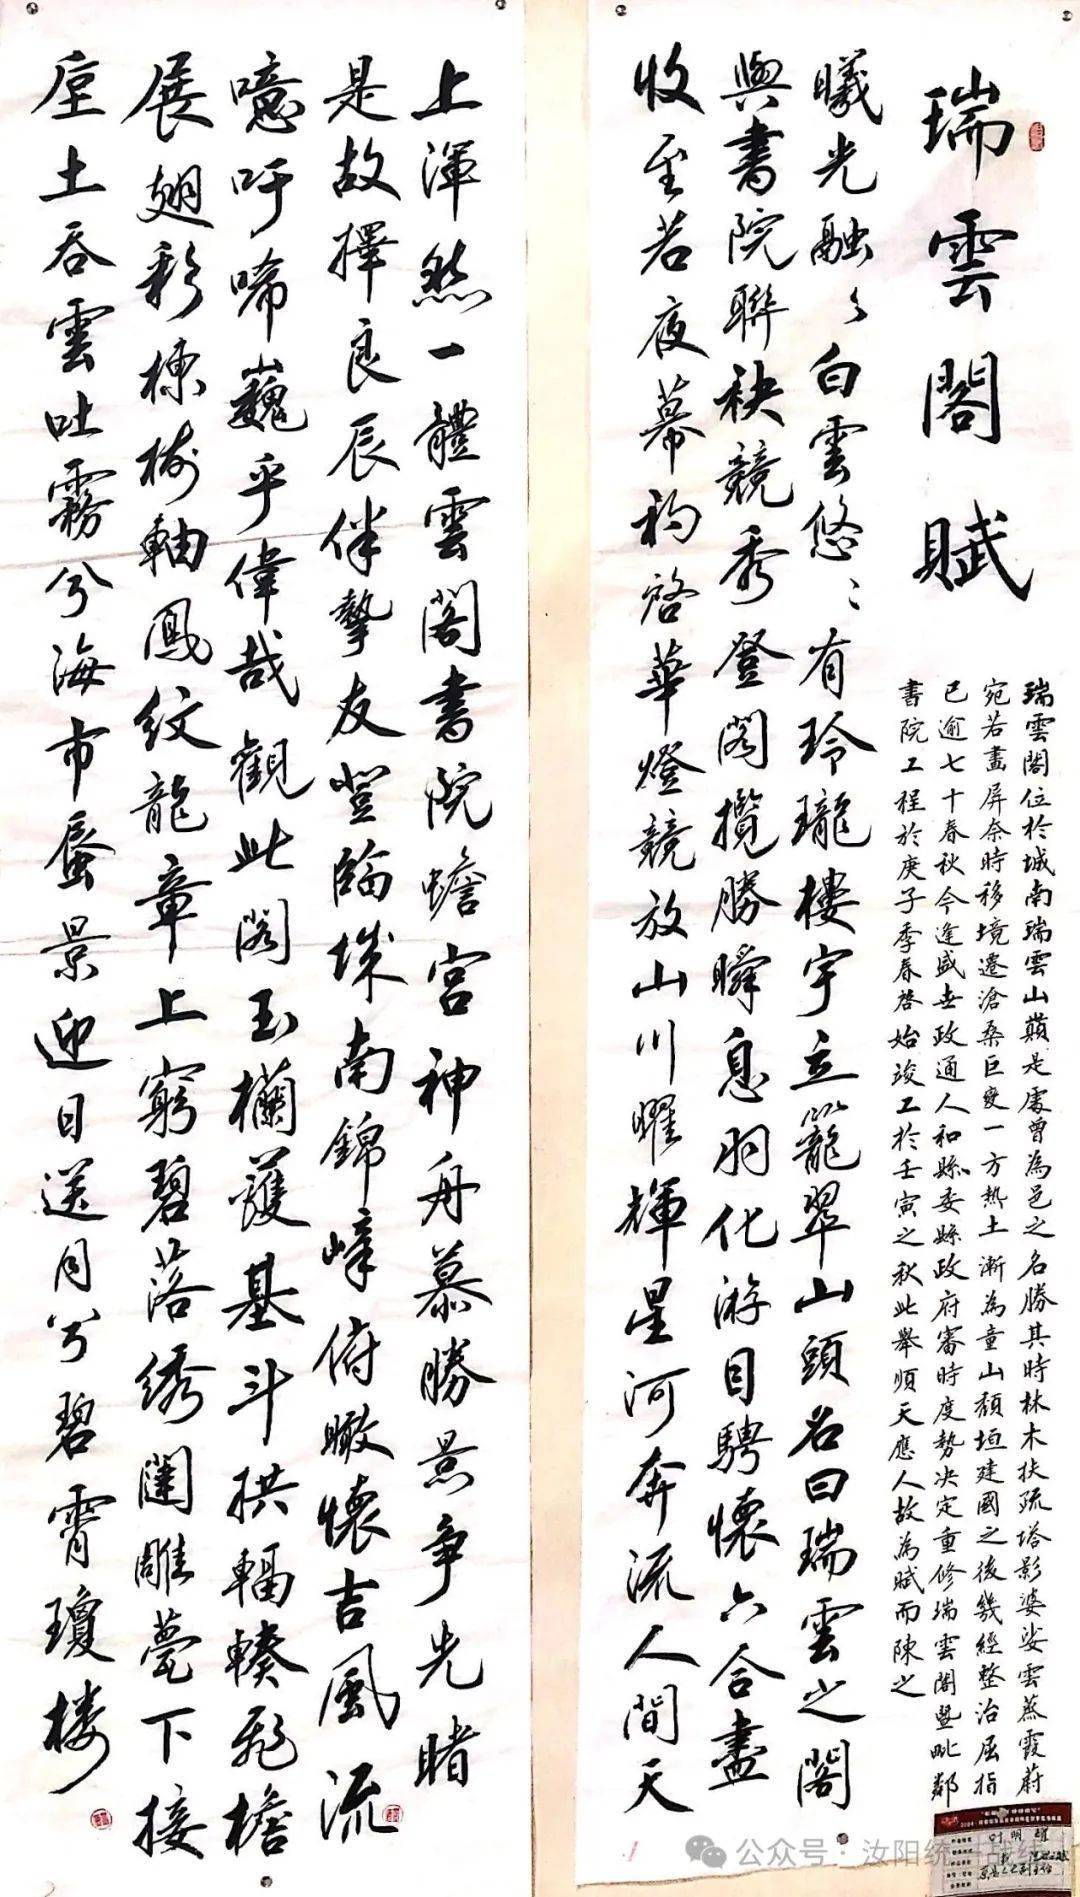 瑞雲閣賦
瑞雲閣位於城南瑞雲山巔是處曾為邑之名勝其時林木扶疏塔影婆娑雲蒸霞蔚
宛若畫屏奈時移境遷滄桑巨變一方热土漸為童山頹垣建國之後幾經整治屈指
已逾七十春秋今逢盛世政通人和縣委縣政府審時度勢决定重修瑞雲閣暨毗鄰
書院工程於庚子季春啓始竣工於壬寅之秋此舉順天應人故為賦而陳之
曦光融々白雲悠々有玲瓏樓宇立籠翠山頭名曰瑞雲之閣
與書院聯袂競秀登閣攬勝瞬息羽化游目騁懷六合盡
收至若夜幕初啓華燈競放山川曜輝星河奔流人間天
上渾然一體雲閣書院蟾宮神舟慕勝景爭先睹
是故擇良辰伴摯友登臨城南錦峰俯瞰懷吉風流
噫吁唏巍乎偉哉觀此閣玉欄護基斗拱輻輳飛檐
展翅彩棟樹軸鳳紋龍章上窮碧落綉闥雕甍下接
垕土吞雲吐霧兮海市蜃景迎日送月兮碧霄瓊楼
公众号 · 汝阳统一战线